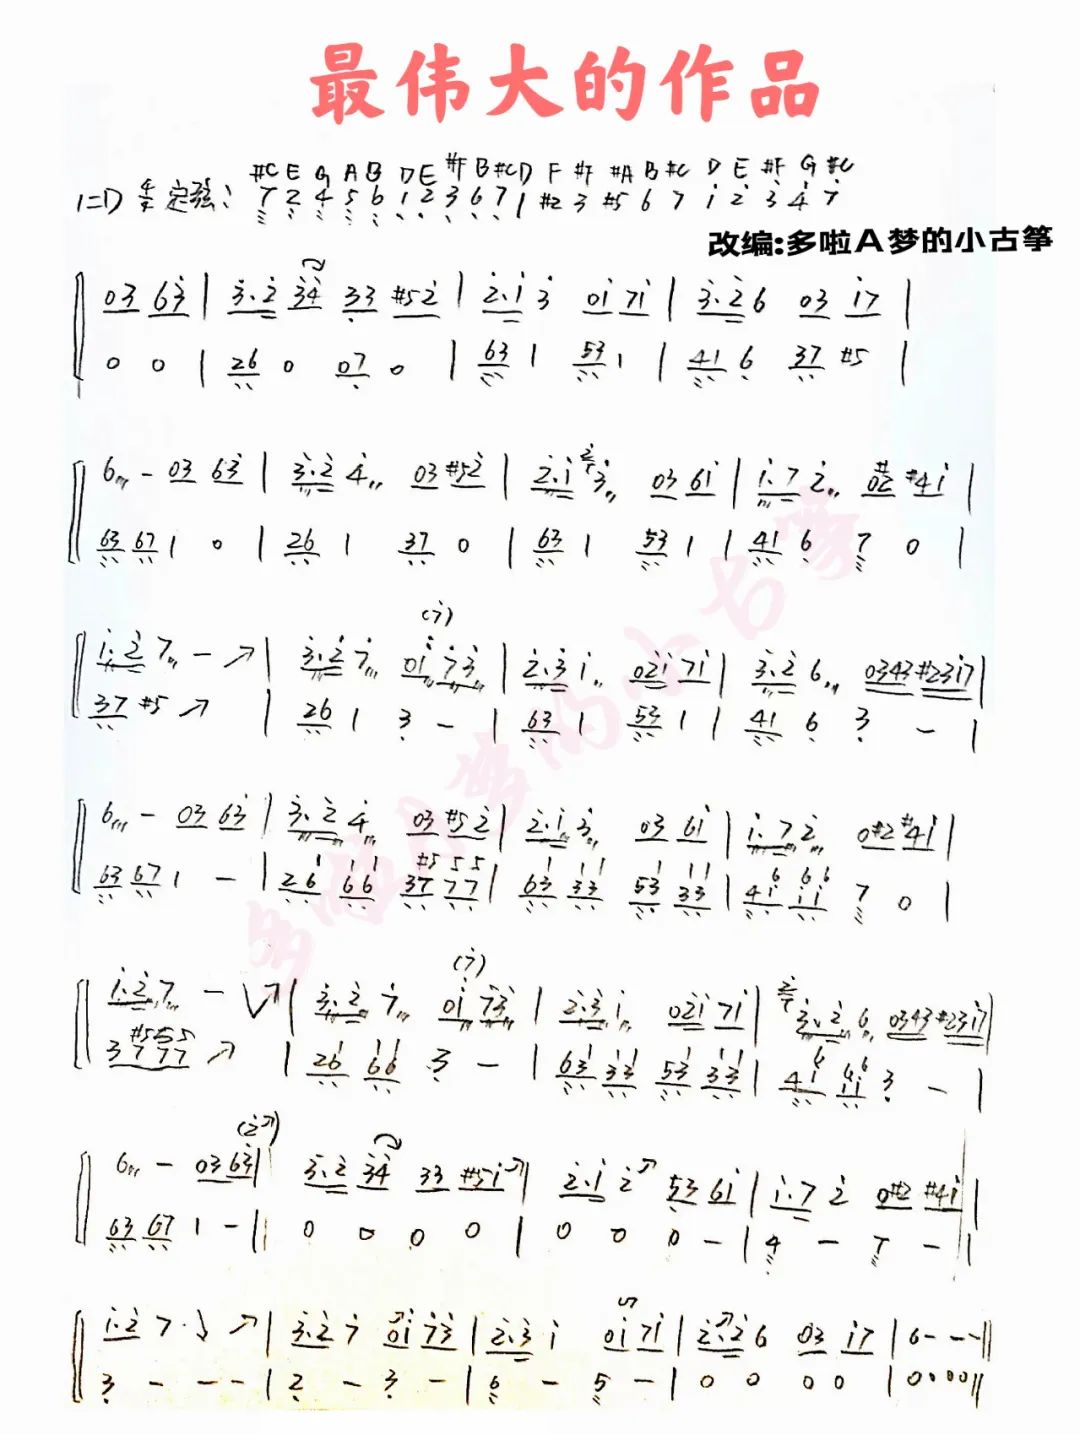 最伟大的作品
#C E G A B D E #F B #C D F #F #A B #C D E #F G #C
1=D 4/4 定弦: 7 2 4 5 6 1 2 3 6 7 1 #2 3 #5 6 7 1 2 3 4 7
改编:多啦A梦的小古筝
03 63 | 3.2 34 33 #52 | 2.1 3 01 71 | 3.2 6 03 17 |
0 0 | 26 0 07 0 | 63 1 53 1 | 41 6 37 #5 |
6 - 03 63 | 3.2 4 03 #52 | 2.1 3 03 61 | 1.7 2 02 #41 |
63 67 1 0 | 26 1 37 0 | 63 1 53 1 | 41 6 7 0 |
(7)
1.2 7 - ↗ | 3.2 7 01 73 | 2.3 1 021 71 | 3.2 6 0343 #2317 |
37 #5 ↗ | 26 1 3 - | 63 1 53 1 | 41 6 3 - |
6 - 03 63 | 3.2 4 03 #52 | 2.1 3 03 61 | 1.7 2 0#2 #41 |
63 67 1 - | 26 66 37 77 | 63 33 53 33 | 41 11 7 0 |
(7)
1.2 7 - ↗ | 3.2 7 01 73 | 2.3 1 021 71 | 3.2 6 0343 #2317 |
3777 ↗ | 26 66 3 - | 63 33 53 33 | 41 11 3 - |
(2↗)
6 - 03 63 | 3.2 34 33 #51↗ | 2.1 2↗ 53 61 | 1.7 2 0#2 #41 |
63 67 1 - | 0 0 0 0 | 0 0 0 - | 4 - 7 - |
1.2 7. ↗ | 3.2 7 01 73 | 2.3 1 01 71 | 2.2 6 03 17 | 6 - - - ‖
3 - - - | 2 - 3 - | 6 - 5 - | 0 0 0 0 | 0000 ‖
多啦A梦的小古筝